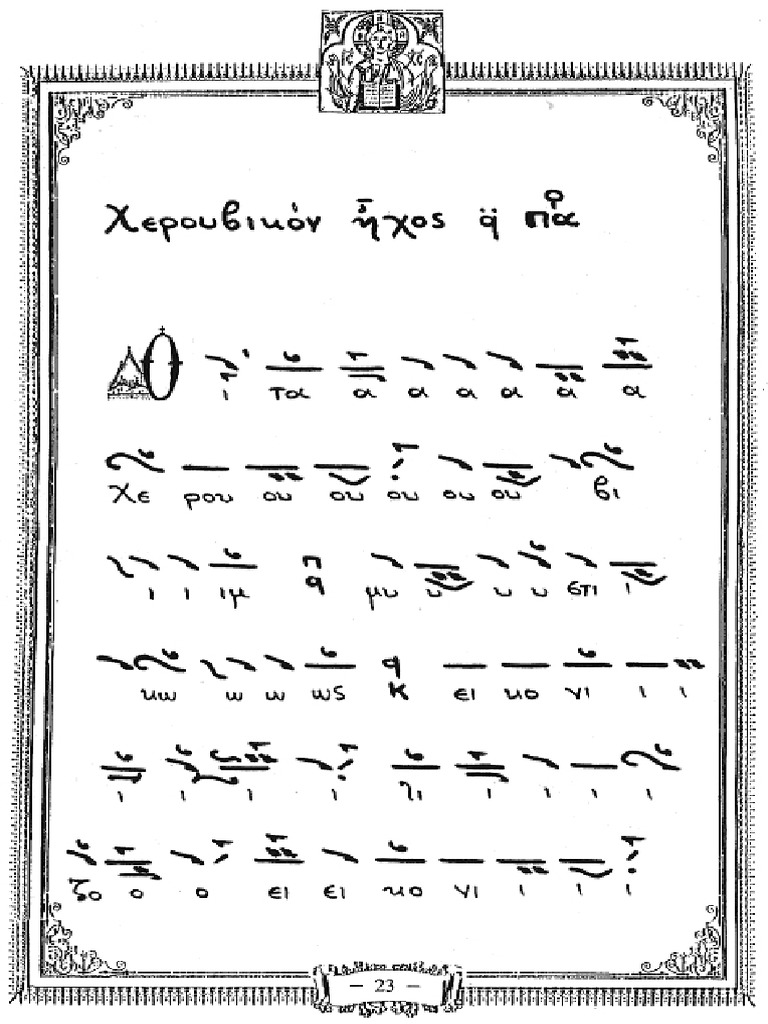 Χερουβικόν ἦχος ᾳ̈ πα
Ο ι τα α α α α α α
χε ρου ου ου ου ου ου βι
ι ι ιμ μυ υ υ υ στι ι
κω ω ω ως ει κο νι ι ι
ι ι ι ι ζι ι ι ι ι
ζο ο ο ει ει κο νι ι ι ι
– 23 –